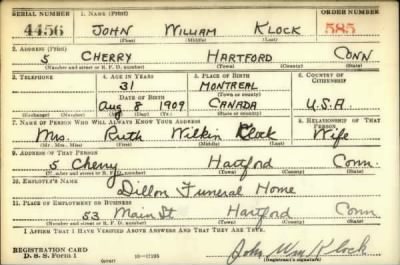 SERIAL NUMBER 1. NAME (Print) ORDER NUMBER
4456 JOHN WILLIAM KLOCK 585
(First) (Middle) (Last)
2. ADDRESS (Print)
5 CHERRY HARTFORD CONN
(Number and street or R. F. D. number) (Town) (County) (State)
3. TELEPHONE 4. AGE IN YEARS 5. PLACE OF BIRTH 6. COUNTRY OF CITIZENSHIP
31 MONTREAL
DATE OF BIRTH (Town or county)
Aug 8 1909 CANADA U.S.A.
(Exchange) (Number) (Mo.) (Day) (Yr.) (State or country)
7. NAME OF PERSON WHO WILL ALWAYS KNOW YOUR ADDRESS 8. RELATIONSHIP OF THAT PERSON
Mrs. Ruth Wilkin Klock Wife
(Mr., Mrs., Miss) (First) (Middle) (Last)
9. ADDRESS OF THAT PERSON
5 Cherry Hartford Conn.
(Number and street or R. F. D. number) (Town) (County) (State)
10. EMPLOYER'S NAME
Dillon Funeral Home
11. PLACE OF EMPLOYMENT OR BUSINESS
53 Main St Hartford Conn
(Number and street or R. F. D. number) (Town) (County) (State)
I AFFIRM THAT I HAVE VERIFIED ABOVE ANSWERS AND THAT THEY ARE TRUE.
REGISTRATION CARD
D. S. S. Form 1 John Wm Klock
(Registrant's signature)